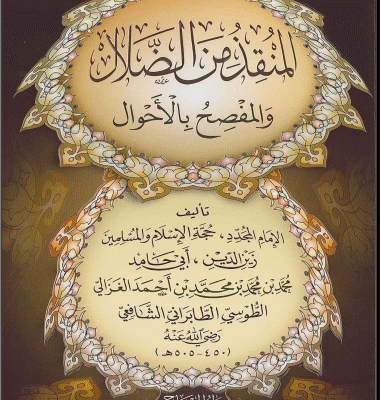 المُنْقِذُ مِنَ الضَّلَالِ
وَالمُفْصِحُ بِالْأَحْوَالِ
تأليف
الإمام المجدّد، حجّة الإسلام والمسلمين
زين الدّين، أبي حامد
محمّد بن محمّد بن محمّد بن أحمد الغزالي
الطّوسي الطّابراني الشّافعي
رضي الله عنه
(٤٥٠-٥٠٥هـ)